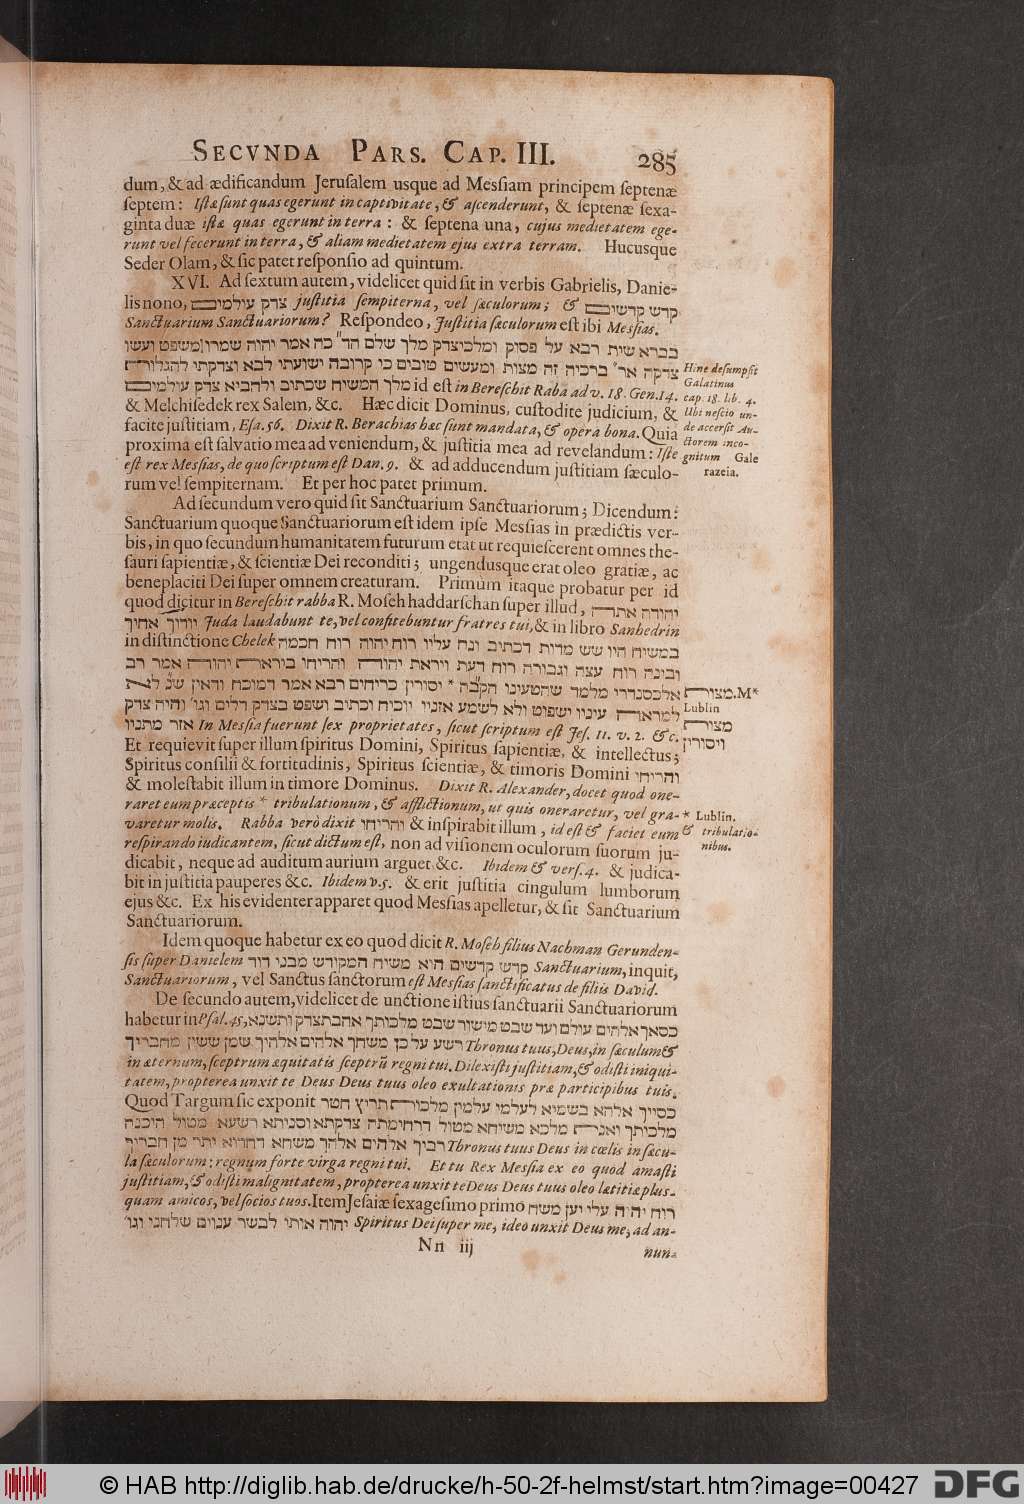 SECVNDA PARS. CAP. III. 285
dum, & ad ædificandum Jerusalem usque ad Messiam principem septenæ
septem: Istæ sunt quas egerunt in captivitate, & ascenderunt, & septenæ sexa-
ginta duæ istæ quas egerunt in terra: & septena una, cujus medietatem ege-
runt vel fecerunt in terra, & aliam medietatem ejus extra terram. Hucusque
Seder Olam, & sic patet responsio ad quintum.
XVI. Ad sextum autem, videlicet quid sit in verbis Gabrielis, Danie-
lis nono, צדק עולמים justitia sempiterna, vel sæculorum; & קדש קדשים
Sanctuarium Sanctuariorum? Respondeo, Justitia sæculorum est ibi Messias.
בברא שית רבא על פסוק ומלכיצדק מלך שלם הד" כה אמר יהוה שמרו משפט ועשו
צדקה אר' ברכיה זה מצות ומעשים טובים כי קרובה ישועתי לבא וצדקתי להגלות
מלך המשיח שכתוב ולהביא צדק עולמים id est in Bereschit Raba ad v. 18. Gen. 14.
& Melchisedek rex Salem, &c. Hæc dicit Dominus, custodite judicium, &
facite justitiam, Esa. 56. Dixit R. Berachias hæc sunt mandata, & opera bona. Quia
proxima est salvatio mea ad veniendum, & justitia mea ad revelandum: Iste
est rex Messias, de quo scriptum est Dan. 9. & ad adducendum justitiam sæculo-
rum vel sempiternam. Et per hoc patet primum.
Hinc desumpsit
Galatinus
cap. 18. lib. 4.
Ubi nescio un-
de accersit Au-
ctorem inco-
gnitum Gale
razeia.
Ad secundum vero quid sit Sanctuarium Sanctuariorum; Dicendum:
Sanctuarium quoque Sanctuariorum est idem ipse Messias in prædictis ver-
bis, in quo secundum humanitatem futurum erat ut requiescerent omnes the-
sauri sapientiæ, & scientiæ Dei reconditi; ungendusque erat oleo gratiæ, ac
beneplaciti Dei super omnem creaturam. Primum itaque probatur per id
quod dicitur in Bereschit rabba R. Moseh haddarschan super illud, יהודה אתה
יודוך אחיך Juda laudabunt te, vel confitebuntur fratres tui, & in libro Sanhedrin
in distinctione Chelek במשיח היו שש מדות דכתיב ונח עליו רוח יהוה רוח חכמה
ובינה רוח עצה וגבורה רוח דעת ויראת יהוה והריחו ביראת יהוה אמר רב
אלכסנדרי מלמד שהטעינו הק"בה * יסורין כריחים רבא אמר דמורח ודאין שנ' לא
למראה עיניו ישפוט ולא לשמע אזניו יוכיח וכתיב ושפט בצדק דלים וגו' והיה צדק
אזר מתניו In Messia fuerunt sex proprietates, sicut scriptum est Jes. 11. v. 2. & c.
Et requievit super illum spiritus Domini, Spiritus sapientiæ, & intellectus;
Spiritus consilii & fortitudinis, Spiritus scientiæ, & timoris Domini והריחו
& molestabit illum in timore Dominus. Dixit R. Alexander, docet quod one-
raret eum præceptis * tribulationum, & afflictionum, ut quis oneraretur, vel gra-
varetur molis. Rabba verò dixit והריחו & inspirabit illum, id est & faciet eum
respirando iudicantem, sicut dictum est, non ad visionem oculorum suorum ju-
dicabit, neque ad auditum aurium arguet &c. Ibidem & vers. 4. & judica-
bit in justitia pauperes &c. Ibidem v. 5. & erit justitia cingulum lumborum
ejus &c. Ex his evidenter apparet quod Messias apelletur, & sit Sanctuarium
Sanctuariorum.
מצות. M*
Lublin
מצות
ויסורין
* Lublin.
& tribulatio-
nibus.
Idem quoque habetur ex eo quod dicit R. Moseh filius Nachman Gerunden-
sis super Danielem קדש קדשים הוא משיח המקודש מבני דוד Sanctuarium, inquit,
Sanctuariorum, vel Sanctus sanctorum est Messias sanctificatus de filiis David.
De secundo autem, videlicet de unctione istius sanctuarii Sanctuariorum
habetur in Psal. 45, כסאך אלהים עולם ועד שבט מישור שבט מלכותך אהבת צדק ותשנא
רשע על כן משחך אלהים אלהיך שמן ששון מחבריך Thronus tuus, Deus, in sæculum &
in æternum, sceptrum æquitatis sceptrũ regni tui. Dilexisti justitiam, & odisti iniqui-
tatem, propterea unxit te Deus Deus tuus oleo exultationis præ participibus tuis.
Quod Targum sic exponit כסייך אלהא בשמיא לעלמי עלמין מלכות תריץ חטר
מלכותך ואנת מלכא משיחא מטול דרחימתה צדקתא וסניתא רשעא מטול היכנה
רביך אלהים אלהך משחא דחדוא יתר מן חבריך Thronus tuus Deus in cœlis in sæcu-
la sæculorum: regnum forte virga regni tui. Et tu Rex Messia ex eo quod amasti
justitiam, & odisti malignitatem, propterea unxit te Deus Deus tuus oleo lætitiæ plus-
quam amicos, vel socios tuos. Item Jesaiæ sexagesimo primo רוח יהוה עלי יען משח
יהוה אותי לבשר ענוים שלחני וגו' Spiritus Dei super me, ideo unxit Deus me, ad an-
Nn iij nun-
© HAB http://diglib.hab.de/drucke/h-50-2f-helmst/start.htm?image=00427 DFG